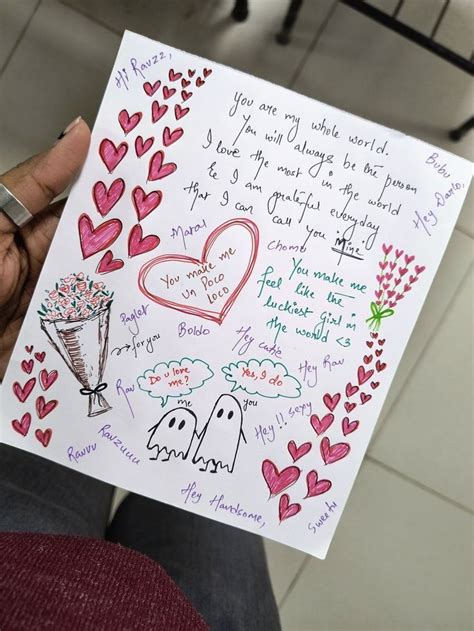 Hi Ravzz,
You are my whole world.
You will always be the person
I love the most in the world
& I am grateful everyday
that I can call you Mine
Bubu
Hey Darlo,
Matal
Chomu
You make me
un Poco
loco
You make me
feel like the
luckiest girl in
the world <3
Paglet
→ for you
Boldo
Hey cutie
Hey Rav
Do u love
me?
Yes, I do
me
you
Rav
Hey!! sexy
Ravvu
Ravzuuu
Hey Handsome,
Sweetu